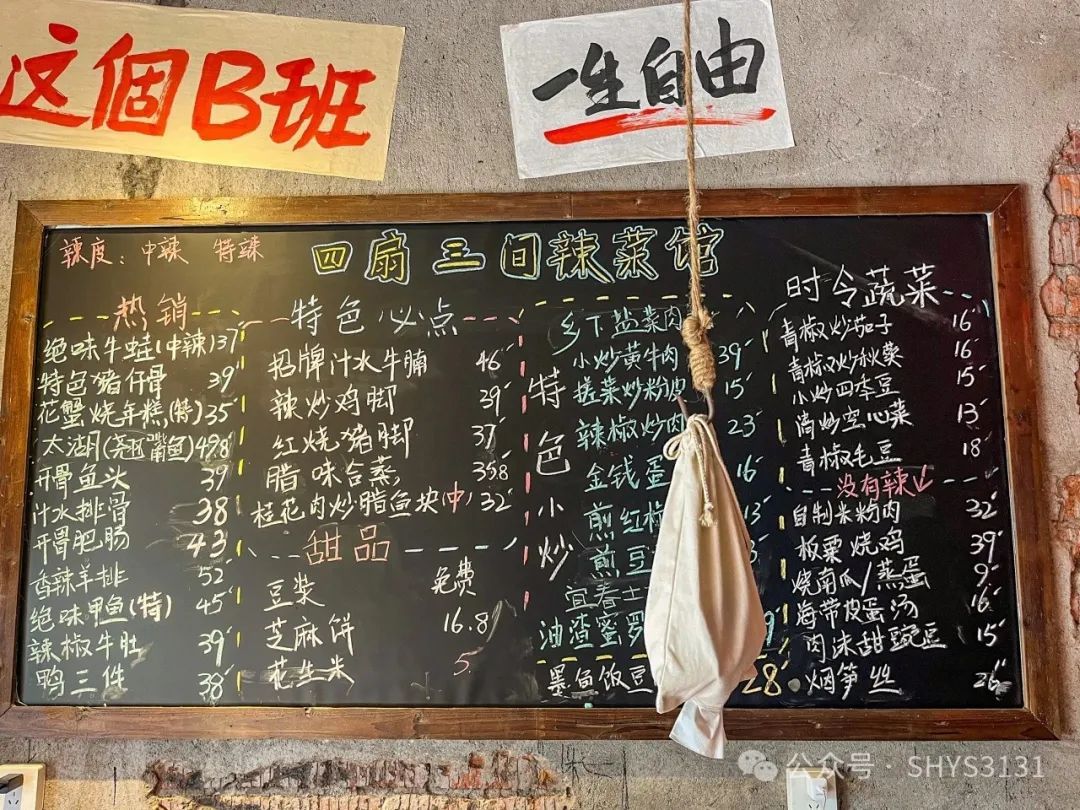 这個B班
一生自由
辣度：中辣 特辣
四扇三间辣菜馆
热销
绝味牛蛙(中辣)37
特色猪仔骨 39
花蟹烧年糕(特)35
太湖 鱼) 49.8
开骨鱼头 39
汁水排骨 38
开骨肥肠 43
香辣羊排 52
绝味甲鱼(特) 45
辣椒牛肚 39
鸭三件 38
特色必点
招牌汁水牛腩 46
辣炒鸡脚 39
红烧猪脚 37
腊味合蒸 35.8
桂花肉炒腊鱼块(中) 32
甜品
豆浆 免费
芝麻饼 16.8
花生米 5
特色小炒
乡下盐菜肉
小炒黄牛肉 39
搓菜炒粉皮 15
辣椒炒肉 23
金钱蛋 16
煎红 13
煎豆
宜春土
油渣蜜罗 9
墨鱼饭豆 28
时令蔬菜
青椒炒茄子 16
青椒炒秋葵 16
小炒四季豆 15
清炒空心菜 13
青椒毛豆 18
没有辣↓
自制米粉肉 32
板栗烧鸡 39
烧南瓜/蒸蛋 9
海带皮蛋汤 16
肉沫甜豌豆 15
烟笋丝 26
公众号 · SHYS3131